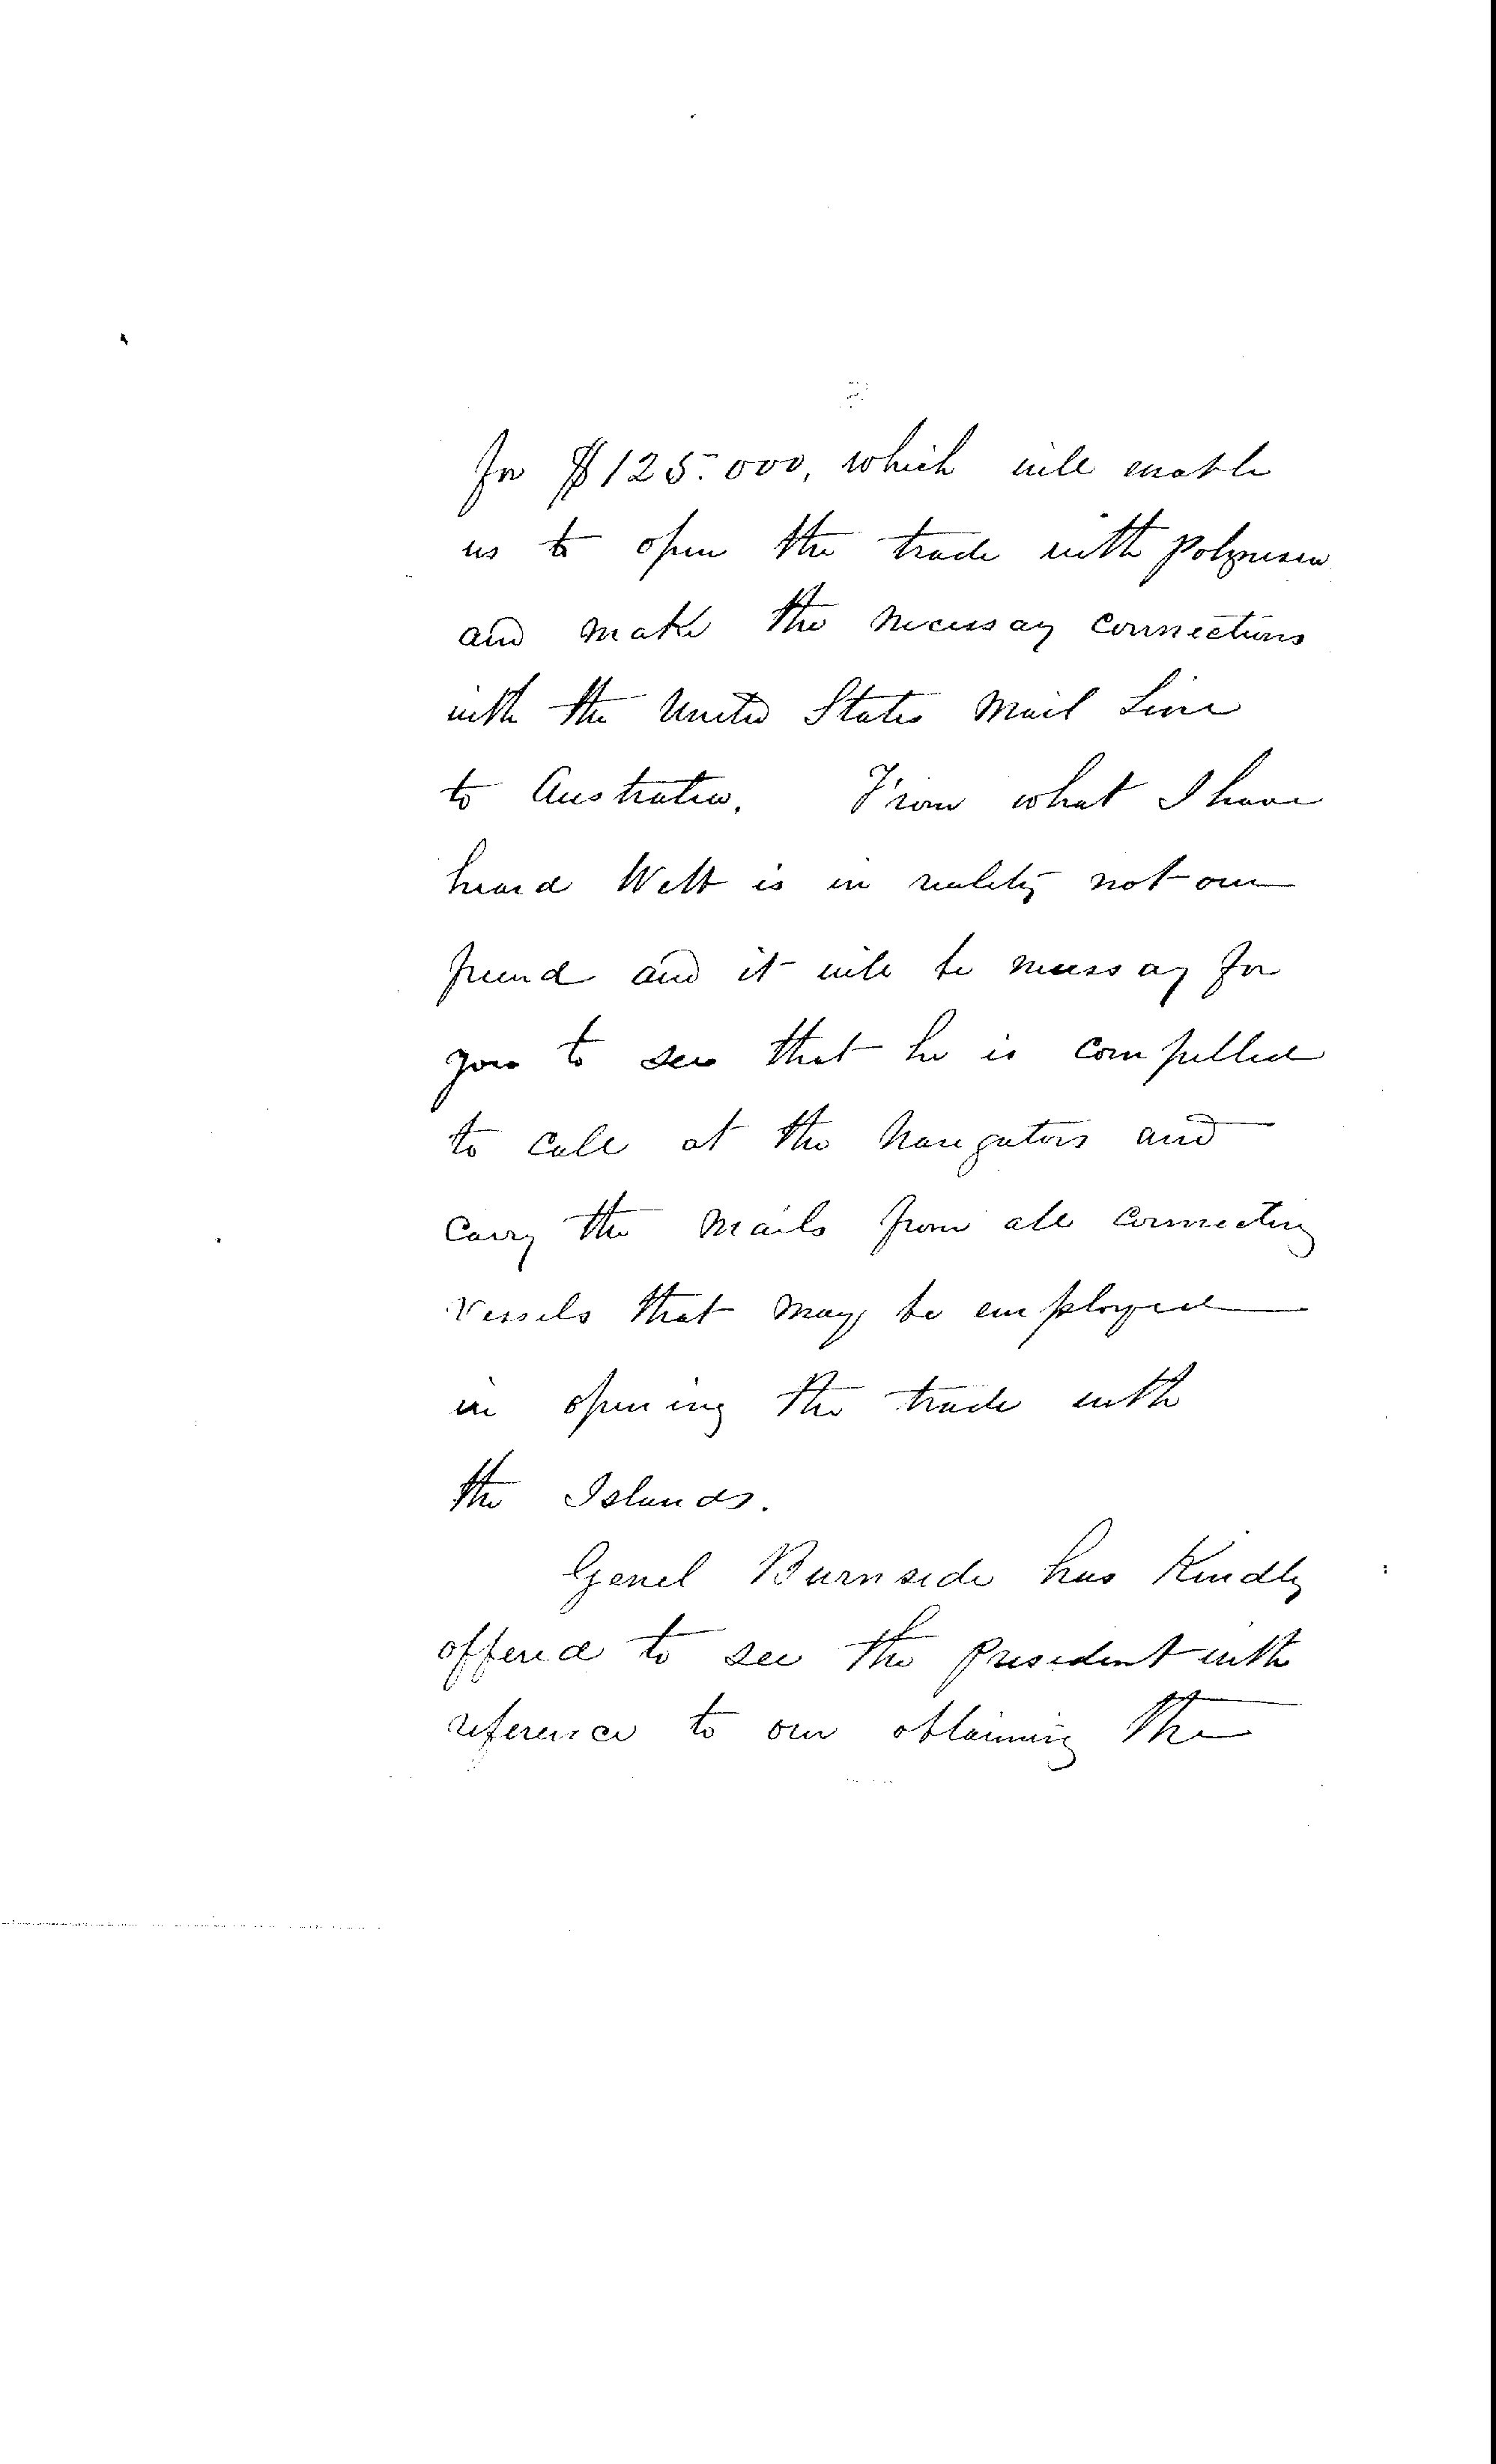 for $125.000, which will enable
us to open the trade with Polynesia
and make the necessay connections
with the United States Mail Line
to Australia. From what I have
heard Webb is in reality not our
friend and it will be necessay for
you to see that he is compelled
to call at the Navigators and
carry the mails from all connecting
Vessels that may be employed
in opening the trade with
the Islands.
Genel Burnside has Kindly
offered to see the President with
reference to our obtaining the